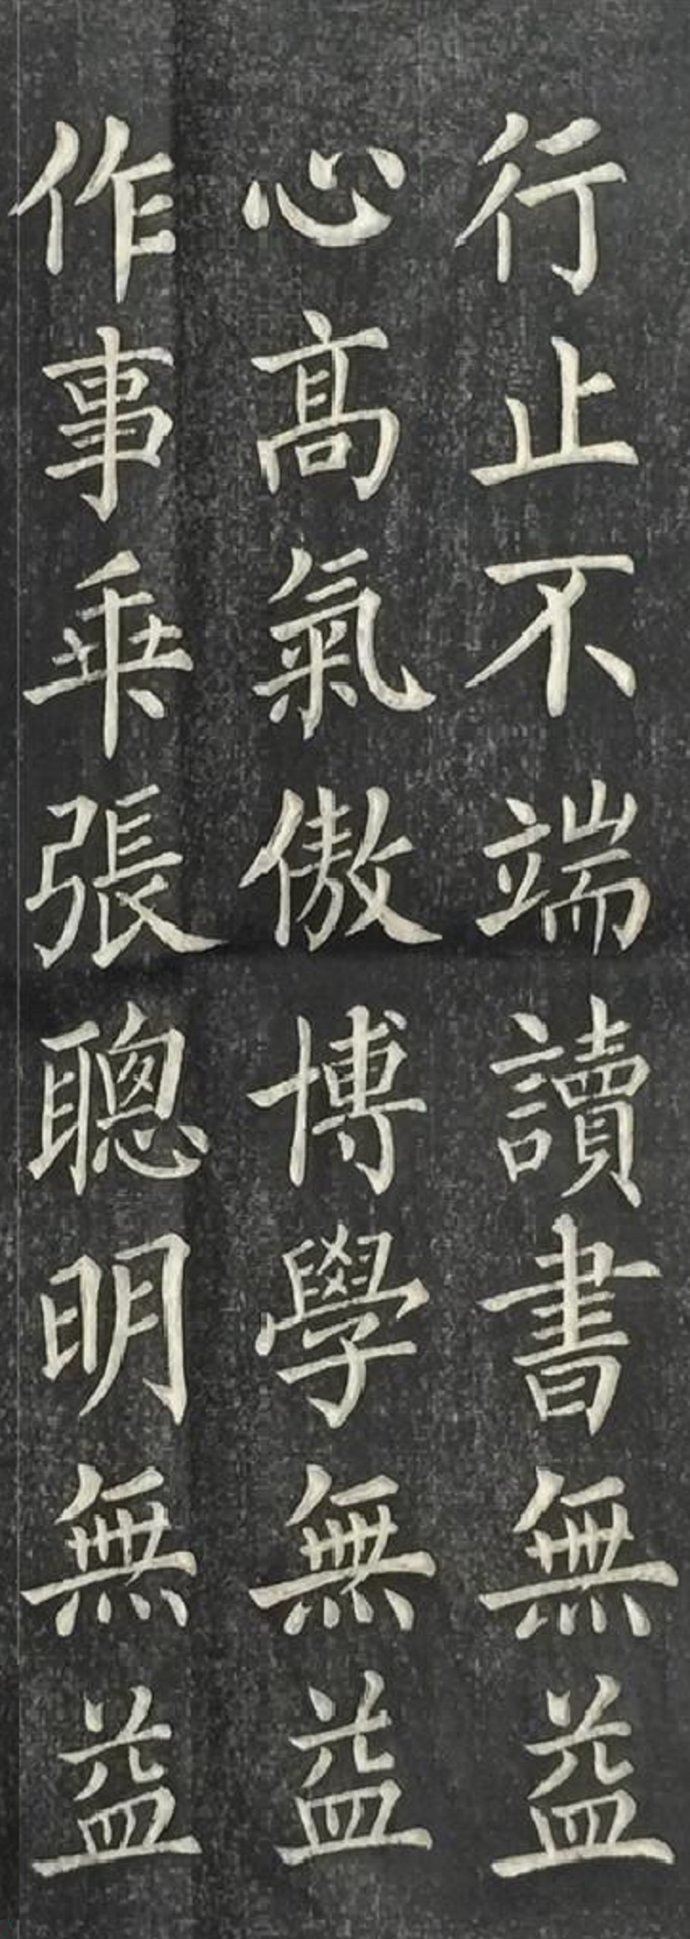 行止不端讀書無益
心髙氣傲博學無益
作事乗張聰明無益